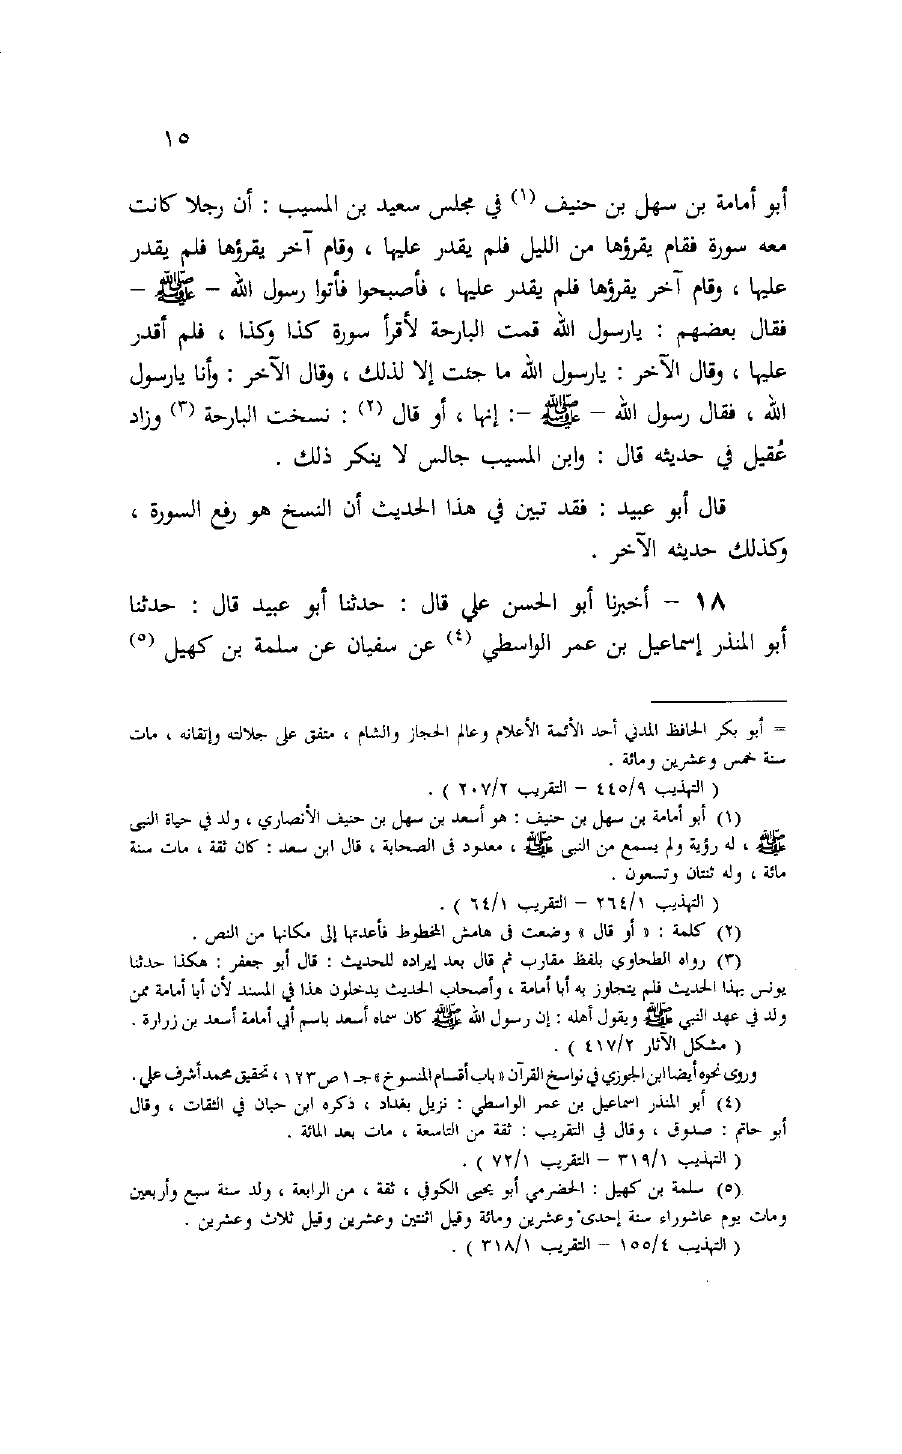 ١٥
أبو أمامة بن سهل بن حنيف (١) في مجلس سعيد بن المسيب : أن رجلا كانت
معه سورة فقام يقرؤها من الليل فلم يقدر عليها ، وقام آخر يقرؤها فلم يقدر
عليها ، وقام آخر يقرؤها فلم يقدر عليها ، فأصبحوا فأتوا رسول الله – ﷺ –
فقال بعضهم : يارسول الله قمت البارحة لأقرأ سورة كذا وكذا ، فلم أقدر
عليها ، وقال الآخر : يارسول الله ما جئت إلا لذلك ، وقال الآخر : وأنا يارسول
الله ، فقال رسول الله – ﷺ –: إنها ، أو قال (٢) : نسخت البارحة (٣) وزاد
عُقيل في حديثه قال : وابن المسيب جالس لا ينكر ذلك .
قال أبو عبيد : فقد تبين في هذا الحديث أن النسخ هو رفع السورة ،
وكذلك حديثه الآخر .
١٨ – أخبرنا أبو الحسن علي قال : حدثنا أبو عبيد قال : حدثنا
أبو المنذر إسماعيل بن عمر الواسطي (٤) عن سفيان عن سلمة بن كهيل (٥)
= أبو بكر الحافظ المدني أحد الأئمة الأعلام وعالم الحجاز والشام ، متفق على جلالته وإتقانه ، مات
سنة خمس وعشرين ومائة .
( التهذيب ٤٤٥/٩ – التقريب ٢٠٧/٢ ) .
(١) أبو أمامة بن سهل بن حنيف : هو أسعد بن سهل بن حنيف الأنصاري ، ولد في حياة النبى
ﷺ ، له رؤية ولم يسمع من النبى ﷺ ، معدود فى الصحابة ، قال ابن سعد : كان ثقة ، مات سنة
مائة ، وله ثنتان وتسعون .
( التهذيب ٢٦٤/١ – التقريب ٦٤/١ ) .
(٢) كلمة : « أو قال » وضعت فى هامش المخطوط فأعدتها إلى مكانها من النص .
(٣) رواه الطحاوي بلفظ مقارب ثم قال بعد إيراده للحديث : قال أبو جعفر : هكذا حدثنا
يونس بهذا الحديث فلم يتجاوز به أبا أمامة ، وأصحاب الحديث يدخلون هذا في المسند لأن أبا أمامة ممن
ولد في عهد النبي ﷺ ويقول أهله : إن رسول الله ﷺ كان سماه أسعد باسم أبي أمامة أسعد بن زرارة .
( مشكل الآثار ٤١٧/٢ ) .
وروى نحوه أيضا ابن الجوزي في نواسخ القرآن « باب أقسام المنسوخ » جـ ١ ص ١٢٣ ، تحقيق محمد أشرف علي .
(٤) أبو المنذر اسماعيل بن عمر الواسطي : نزيل بغداد ، ذكره ابن حبان في الثقات ، وقال
أبو حاتم : صدوق ، وقال في التقريب : ثقة من التاسعة ، مات بعد المائة .
( التهذيب ٣١٩/١ – التقريب ٧٢/١ ) .
(٥) سلمة بن كهيل : الحضرمي أبو يحيى الكوفي ، ثقة ، من الرابعة ، ولد سنة سبع وأربعين
ومات يوم عاشوراء سنة إحدى وعشرين ومائة وقيل اثنتين وعشرين وقيل ثلاث وعشرين .
( التهذيب ١٥٥/٤ – التقريب ٣١٨/١ ) .